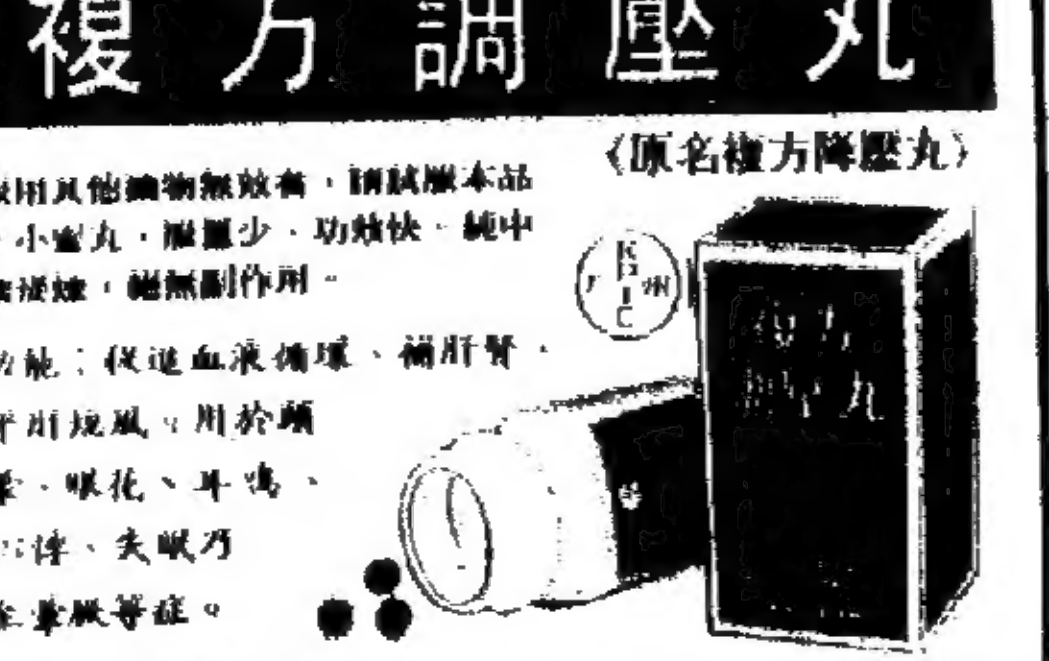 複方調壓丸
《原名複方降壓丸》
用其他藥物無效者，請試服本品
小蜜丸，服量少，功效快，純中
，絕無副作用。
功能：促進血液循環、補肝腎、
平肝熄風。用於頭
眼花、耳鳴、
悸、失眠乃
暈厥等症。
KPIC
州